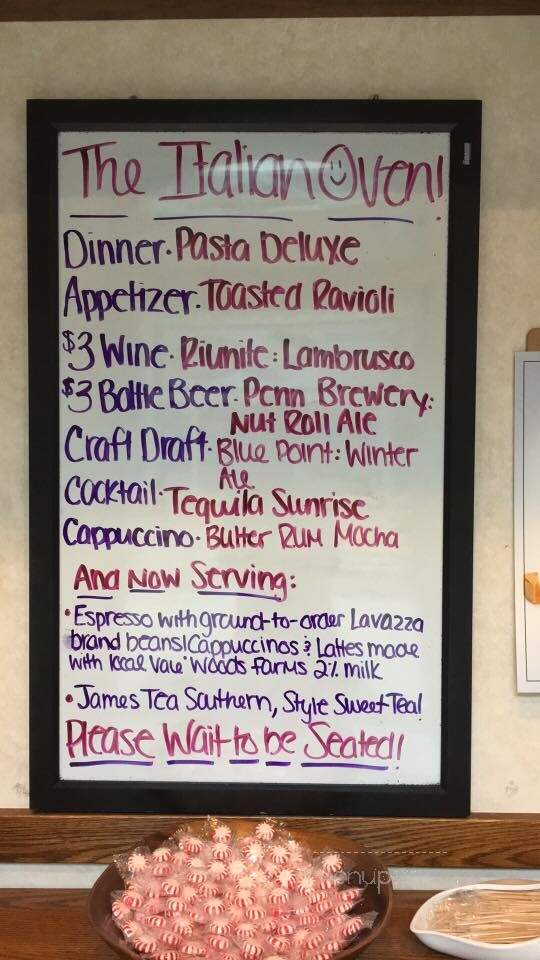 The Italian Oven!
Dinner · Pasta Deluxe
Appetizer · Toasted Ravioli
$3 Wine · Riunite: Lambrusco
$3 Bottle Beer · Penn Brewery:
Nut Roll Ale
Craft Draft · Blue Point: Winter
Ale
Cocktail · Tequila Sunrise
Cappuccino · Butter Rum Mocha
And Now Serving:
• Espresso with ground-to-order Lavazza
brand beans! Cappuccinos & Lattes made
with local Vale Woods Farms 2% milk
• James Tea Southern, Style Sweet Tea!
Please Wait to be Seated!